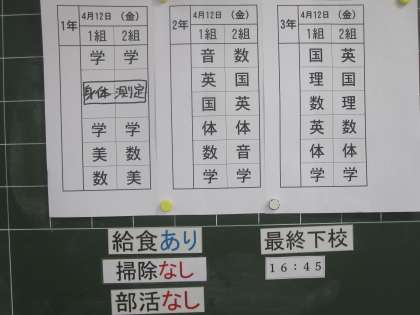 1年 4月12日 (金)
1組 2組
学 学
身体測定
学 学
美 数
数 美
2年 4月12日 (金)
1組 2組
音 数
英 国
国 英
体 体
数 音
学 学
3年 4月12日 (金)
1組 2組
国 英
理 国
数 理
英 数
体 体
学 学
給食あり
掃除なし
部活なし
最終下校
16:45